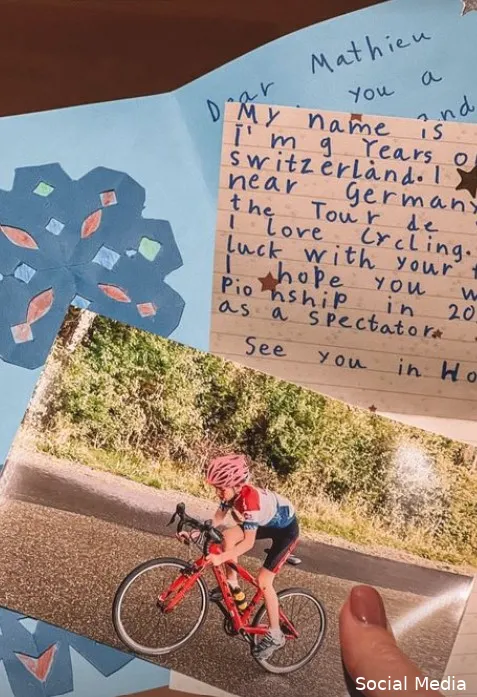 Dear Mathieu
you a
and
My name is
I'm 9 Years o
Switzerland. I
near Germany
the Tour de
I love Crcling.
luck with your
I hope you w
Pionship in 20
as a spectator.
See you in Ho
Social Media